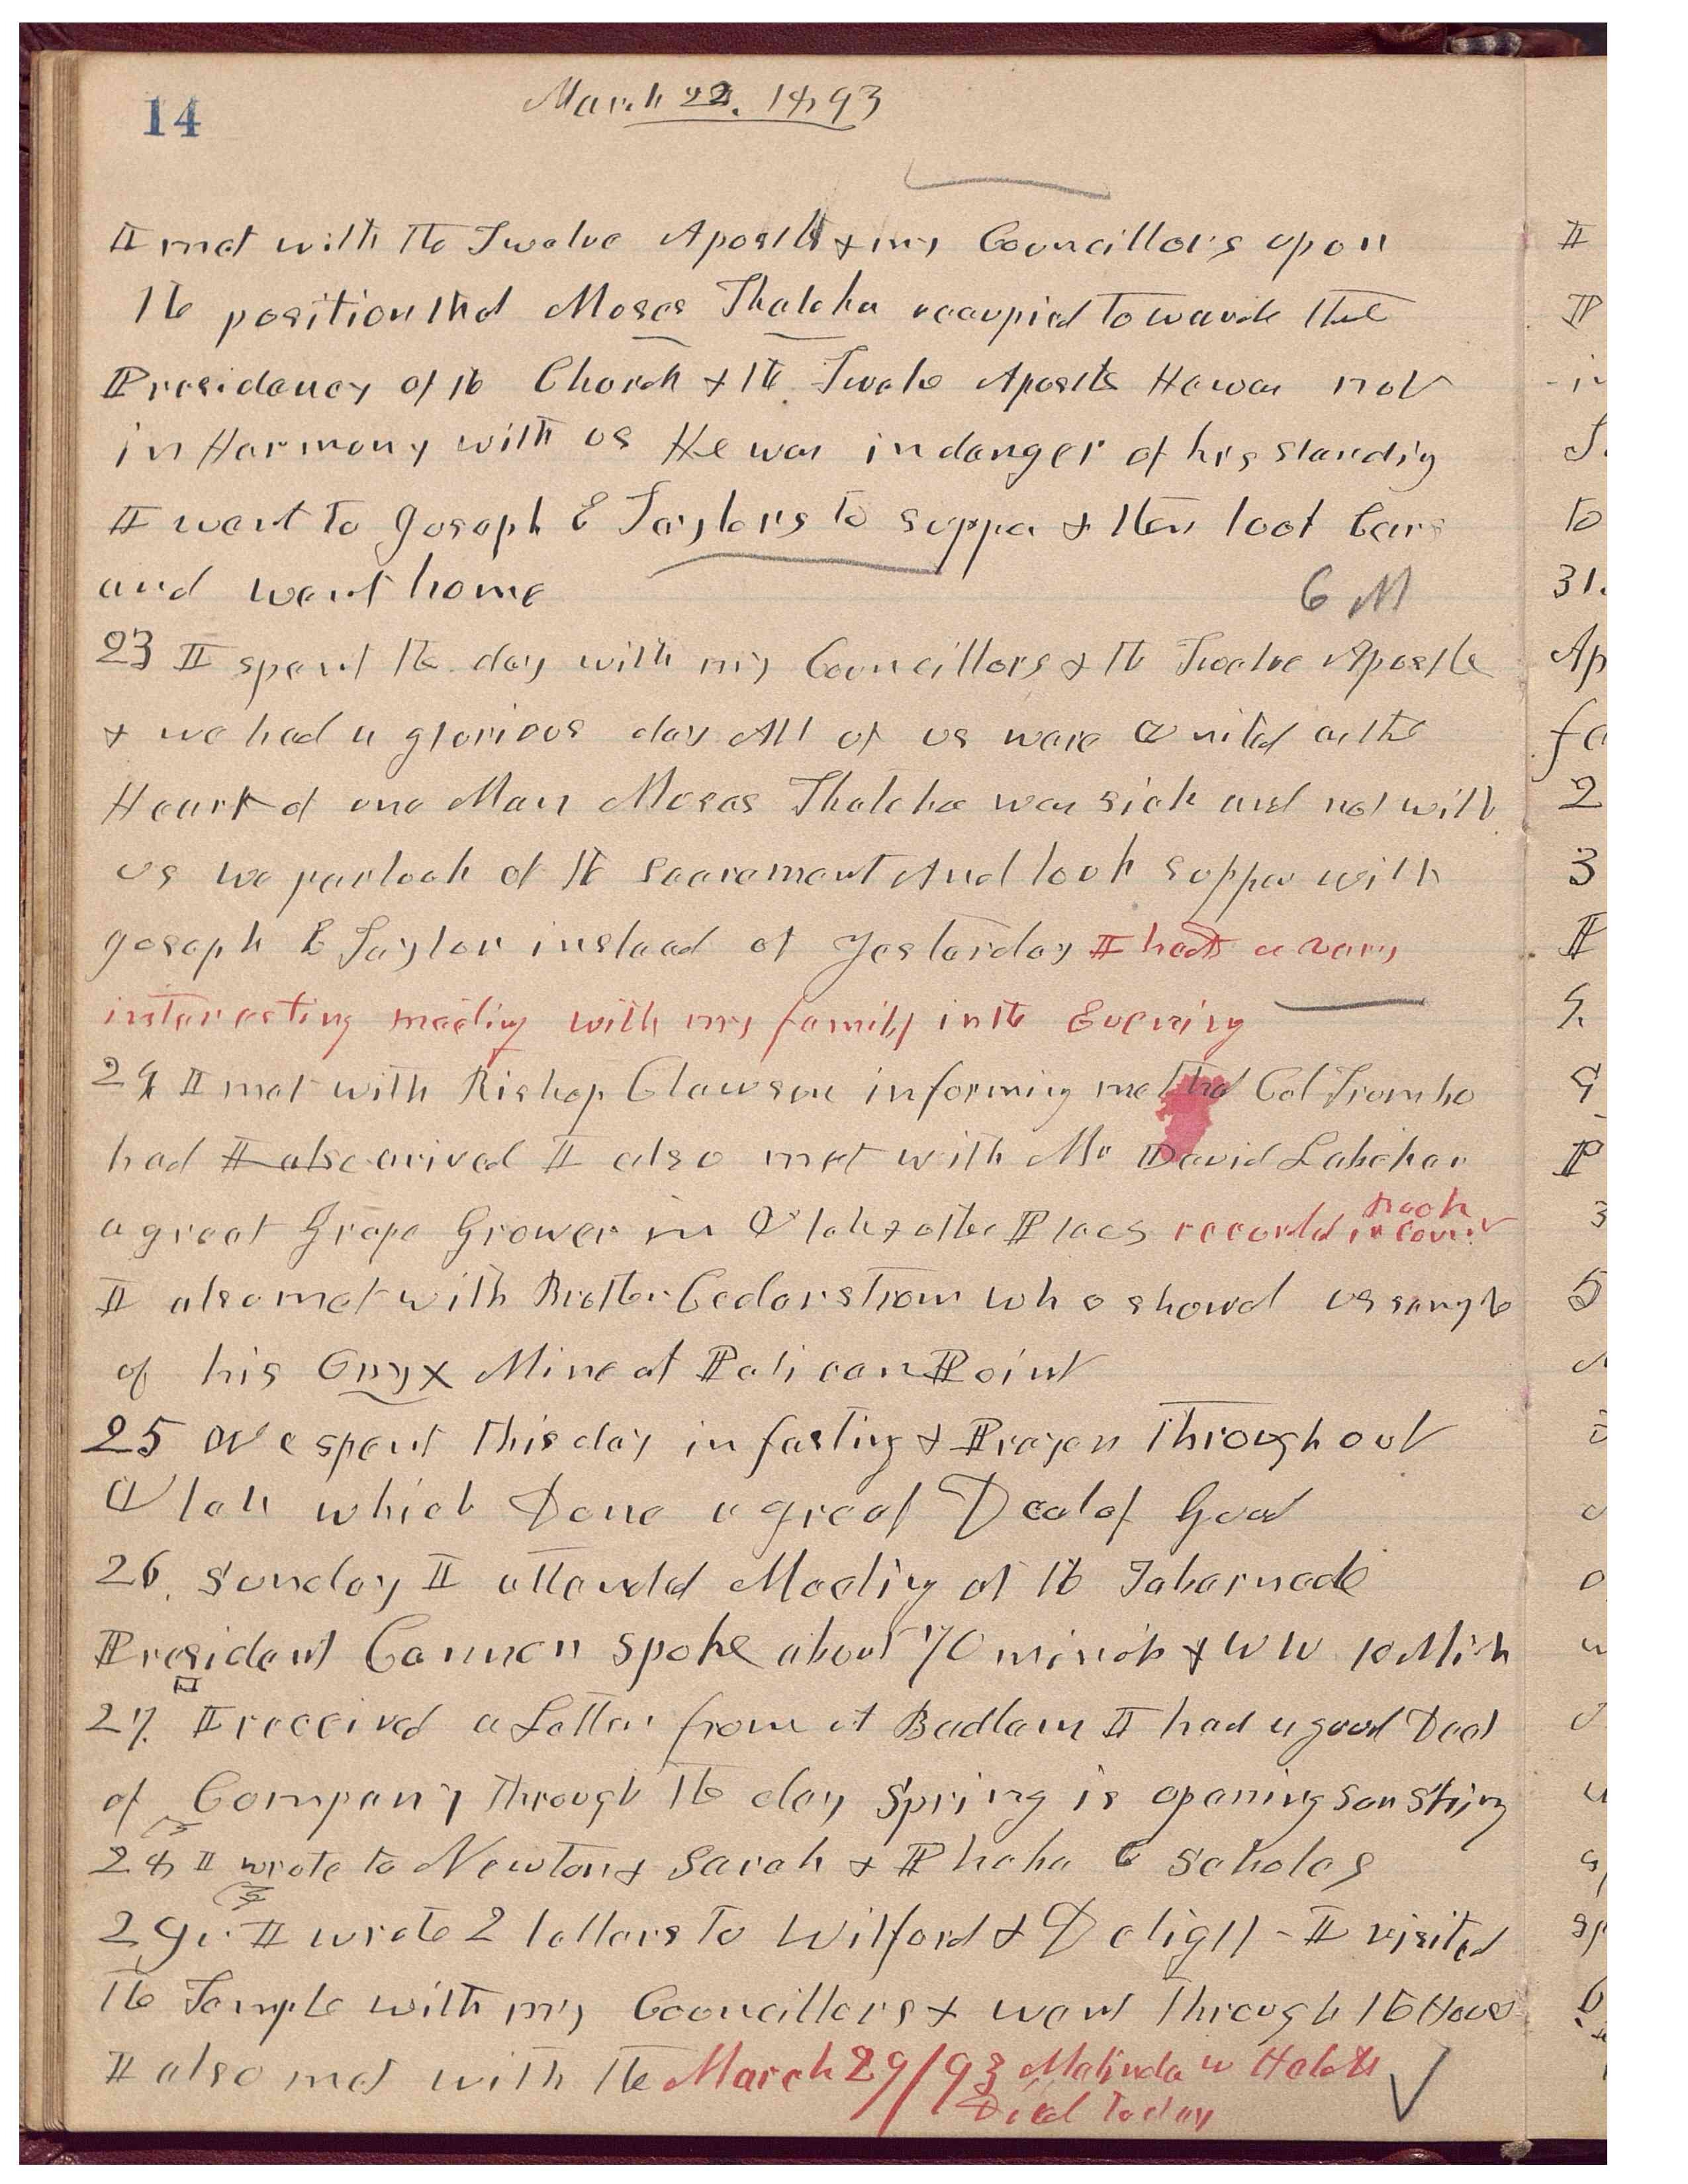 14
March 22. 1893
I met with the Twelve Apostls & my Councillors upon
the position that Moses Thatcher occupied towards the
Presidency of the Church & the Twelve Apostls He was not
in Harmony with us He was in danger of his standig
I went to Joseph E Taylors to supper & then took Cars
and went home
6 M
23 I spent the day with my Councillors & the Twelve Apostle
& we had a glorious day All of us were United as the
Heart of one Man Moses Thatcher was sick and not with
us we partook of the Sacrament And took supper with
Joseph E Taylor instead of yesterday I had a very
interesting meetig with my family in the Evening
24 I met with Bishop Clawson informing me that Col Trombo
had I also arived I also met with Mr David
a great Grape Grower in Utah & other Places recorded in
book
I also met with Brother Cedarstrom who showd us sample
of his Onyx Mine at Pelican Point
25 We spent this day in fasting & Prayer Throughout
Utah which Done a great Deal of Good
26. Sunday I attended Meeting at the Tabernacle
President Cannon spoke about 70 minuts & WW 10 Min
27. I received a Letter from A Badlam I had a good Deal
of Company through the day Spring is opening sun Shing
28 I wrote to Newton & Sarah & Phebe C Scholes
29. I wrote 2 letters to Wilford & I visited
the Temple with my Councillors & went through the House
I also met with the March 29/93 Malinda W
Died today
I
P
to
31.
Ap
2
3
I
9
P
3
5